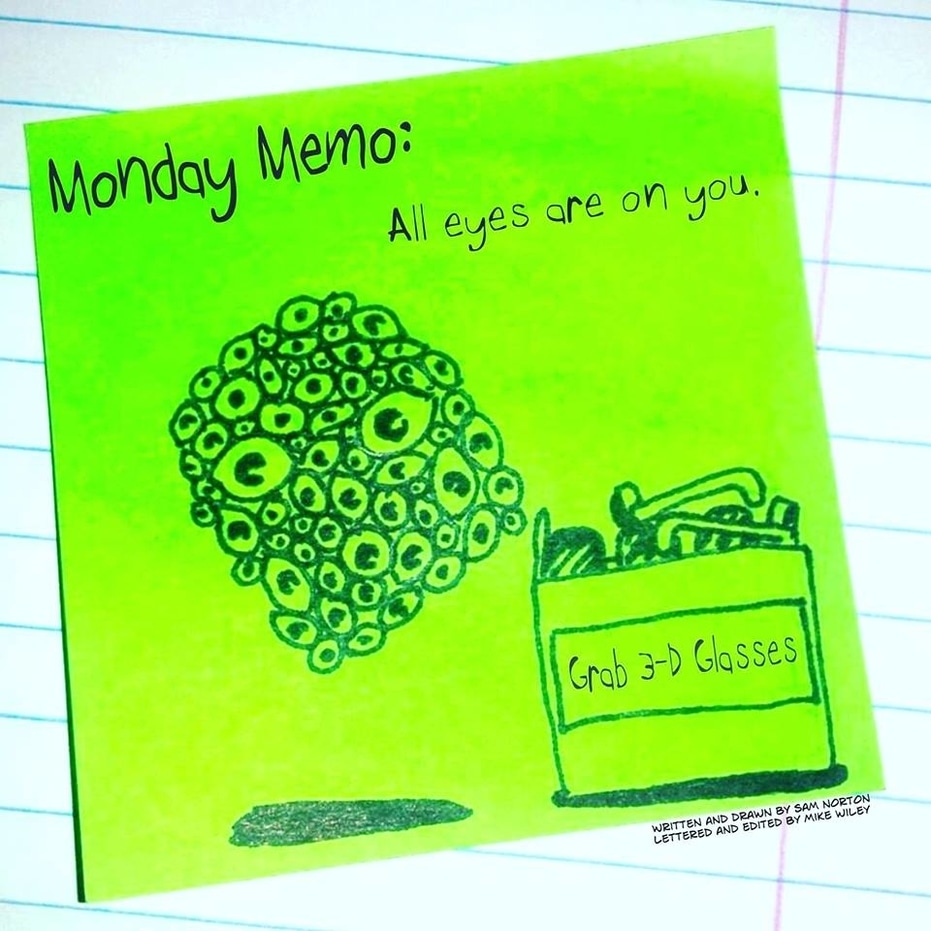 Monday Memo:
All eyes are on you.
Grab 3-D Glasses
WRITTEN AND DRAWN BY SAM NORTON
LETTERED AND EDITED BY MIKE WILEY